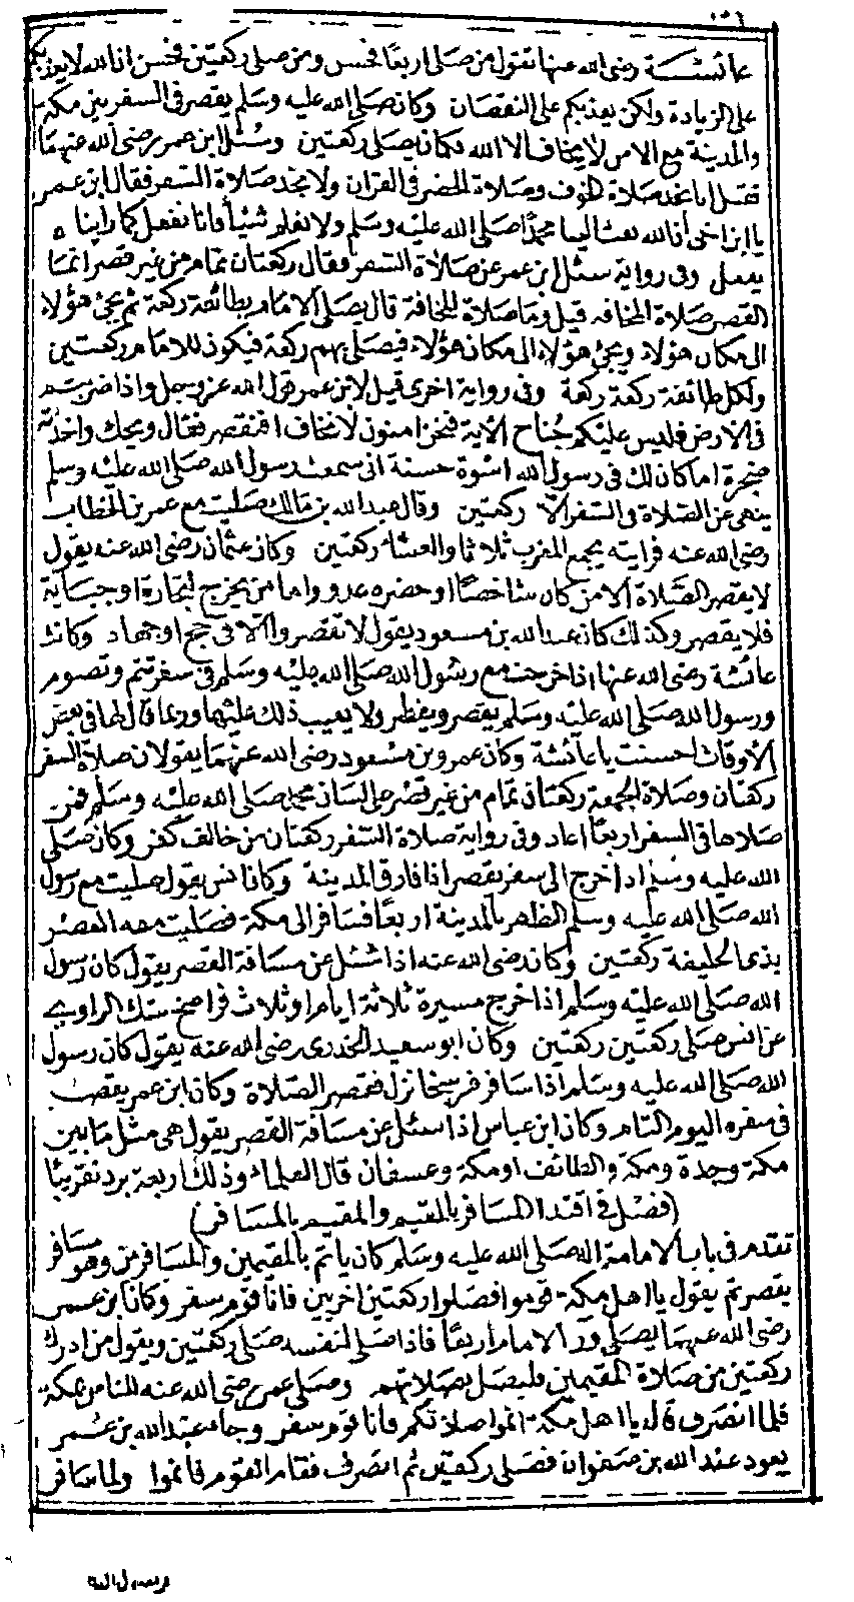 ١٥٦
عائشة رضى الله عنها تقول من صلى اربعا فحسن ومن صلى ركعتين فحسن ان الله لا يعذبكم
على الزيادة ولكن يعذبكم على النقصان وكان صلى الله عليه وسلم يقصر فى السفر بين مكة
والمدينة مع الامن لا يخاف الا الله فكان يصلى ركعتين وسئل ابن عمر رضى الله عنهما
فقيل انا نجد صلاة الخوف وصلاة الحضر فى القران ولا نجد صلاة السفر فقال ابن عمر
يا ابن اخى ان الله بعث الينا محمدا صلى الله عليه وسلم ولا نعلم شيأ وانا نفعل كما راينا ه
يفعل وفى رواية سئل ابن عمر عن صلاة السفر فقال ركعتان تمام من غير قصر انما
القصر صلاة المخافه قيل وما صلاة المخافة قال يصلى الامام بطائفة ركعة ثم يجئ هؤلاء
الى مكان هؤلاء ويجئ هؤلاء الى مكان هؤلاء فيصلى بهم ركعة فيكون للامام ركعتين
ولكل طائفة ركعة ركعة وفى رواية اخرى قيل لابن عمر قول الله عز وجل واذا ضربتم
فى الارض فليس عليكم جناح الاية فنحن امنون لا نخاف افنقصر فقال ويحك واخذته
ضجرة اما كان لك فى رسول الله اسوة حسنة انى سمعت رسول الله صلى الله عليه وسلم
ينهى عن الصلاة فى السفر الا ركعتين وقال عبد الله بن مالك صليت مع عمر بن الخطاب
رضى الله عنه فرايته يجمع المغرب ثلاثا والعشاء ركعتين وكان عثمان رضى الله عنه يقول
لا يقصر الصلاة الا من كان شاخصا او حضره عدو واما من يخرج لتجارة او جباية
فلا يقصر وكذلك كان عبد الله بن مسعود يقول لا تقصروا الا فى حج او جهاد وكانت
عائشة رضى الله عنها اذا خرجت مع رسول الله صلى الله عليه وسلم فى سفر تتم وتصوم
ورسول الله صلى الله عليه وسلم يقصر ويفطر ولا يعيب ذلك عليها وربما قال لها فى بعض
الاوقات احسنت يا عائشة وكان عمر وبن مسعود رضى الله عنهما يقولان صلاة السفر
ركعتان وصلاة الجمعة ركعتان تمام من غير قصر على لسان محمد صلى الله عليه وسلم فمن
صلاها فى السفر اربعا اعاد وفى رواية صلاة السفر ركعتان من خالف كفر وكان صلى
الله عليه وسلم اذا خرج الى سفر يقصر اذا فارق المدينة وكان انس يقول صليت مع رسول
الله صلى الله عليه وسلم الظهر بالمدينة اربعا فسافر الى مكة فصليت معه العصر
بذى الحليفة ركعتين وكان رضى الله عنه اذا سئل عن مسافة القصر يقول كان رسول
الله صلى الله عليه وسلم اذا خرج مسيرة ثلاثة ايام او ثلاث فراسخ شك الراوى
عن انس صلى ركعتين ركعتين وكان ابو سعيد الخدرى رضى الله عنه يقول كان رسول
الله صلى الله عليه وسلم اذا سافر فرسخا نزل فقصر الصلاة وكان ابن عمر يقصر
فى سفره اليوم التام وكان ابن عباس اذا سئل عن مسافة القصر يقول هى مثل ما بين
مكة وجدة ومكة والطائف او مكة وعسفان قال العلماء وذلك اربعة برد تقريبا
(فصل فى اقتدا المسافر بالمقيم والمقيم بالمسافر)
تقدم فى باب الامامة انه صلى الله عليه وسلم كان ياتم بالمقيمين والمسافرين وهو مسافر
يقصر ثم يقول يا اهل مكة قوموا فصلوا ركعتين اخريين فانا قوم سفر وكان ابن عمر
رضى الله عنهما يصلى ورآ الامام اربعا فاذا صلى لنفسه صلى ركعتين ويقول من ادرك
ركعتين من صلاة المقيمين فليصل بصلاتهم وصلى عمر رضى الله عنه للناس بمكة
فلما انصرف قال يا اهل مكة اتموا صلاتكم فانا قوم سفر وجاء عبد الله بن عمر
يعود عبد الله بن صفوان فصلى ركعتين ثم انصرف فقام القوم فاتموا ولما سافر
رسول الله